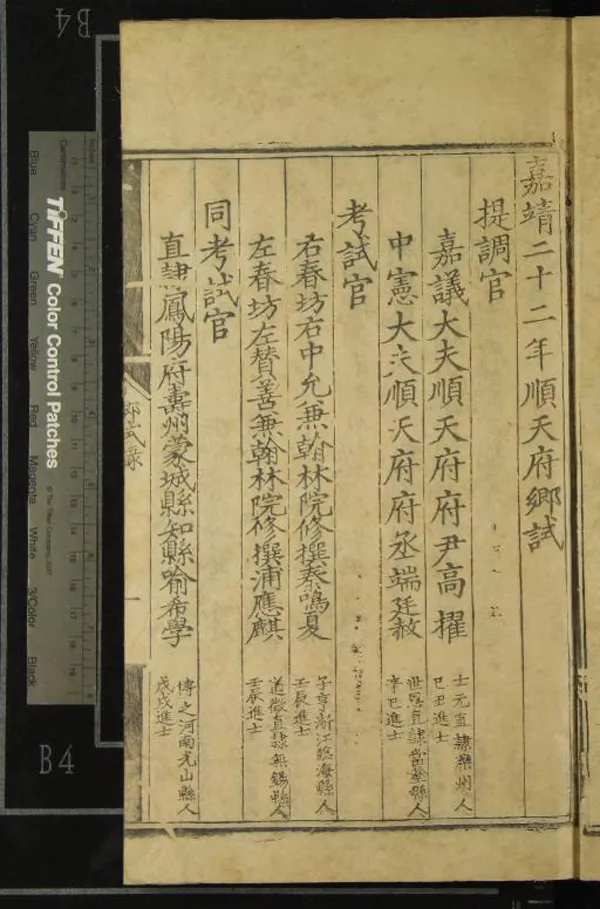 嘉靖二十二年順天府鄉試
提調官
嘉議大夫順天府府尹高擢
士元直隸灤州人
己丑進士
中憲大夫順天府府丞端廷赦
世恩直隸當塗縣人
辛巳進士
考試官
右春坊右中允兼翰林院修撰秦鳴夏
子亨浙江臨海縣人
壬辰進士
左春坊左贊善兼翰林院修撰浦應麒
道徵直隸無錫縣人
壬辰進士
同考試官
直隸鳳陽府壽州蒙城縣知縣喻希學
博之河南光山縣人
戊戌進士
鄉試錄
一
B4
B4
Inches
Centimetres
TIFFEN Color Control Patches
© The Tiffen Company, 2007
Blue
Cyan
Green
Yellow
Red
Magenta
White
3/Color
Black